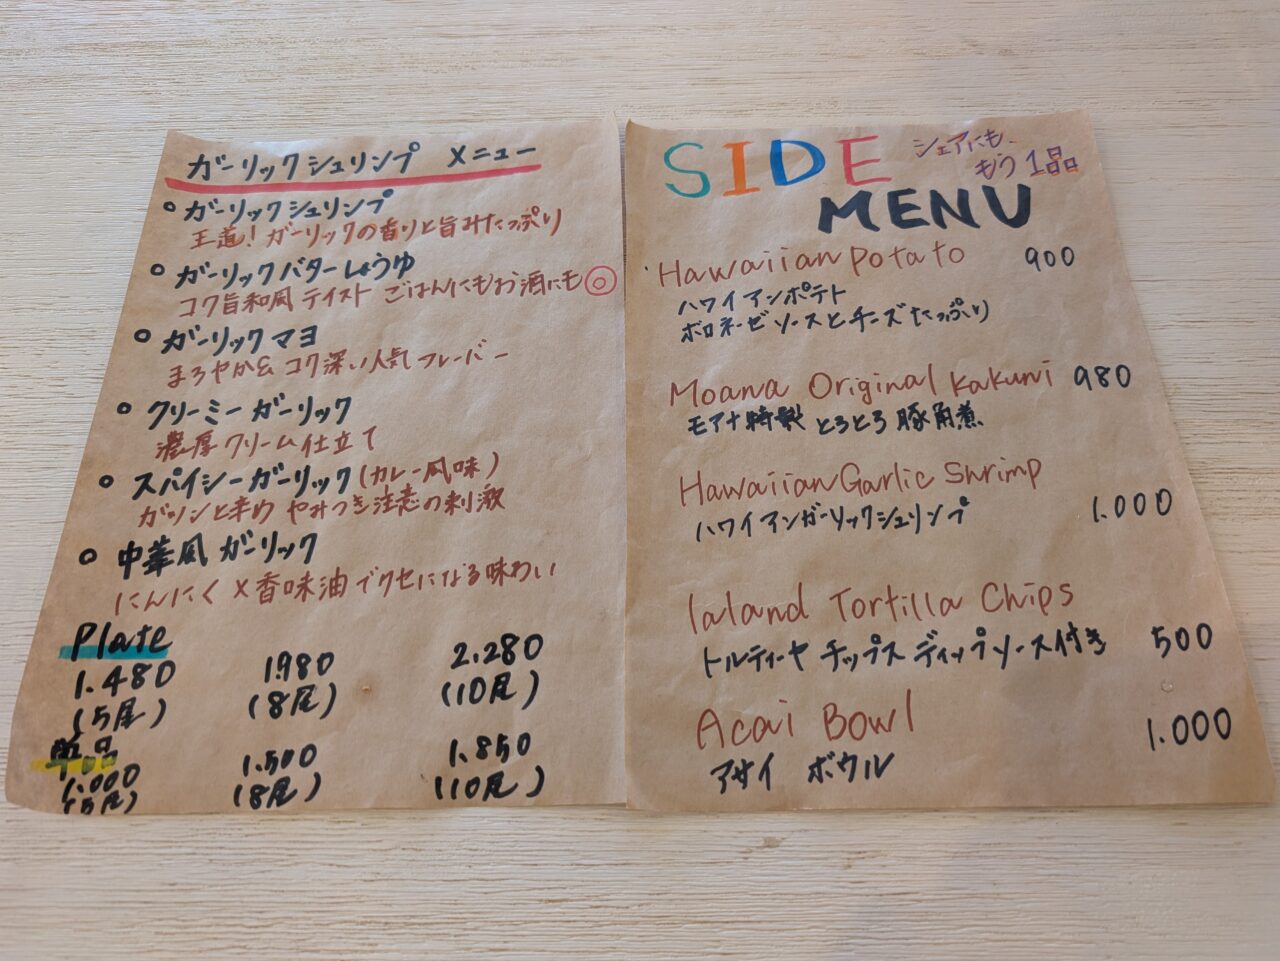 ガーリックシュリンプ メニュー
○ ガーリックシュリンプ
王道！ガーリックの香りと旨みたっぷり
○ ガーリックバターしょうゆ
コク旨和風テイスト ごはんにもお酒にも◎
○ ガーリックマヨ
まろやか& コク深い人気フレーバー
○ クリーミーガーリック
濃厚クリーム仕立て
○ スパイシーガーリック(カレー風味)
ガツンと辛め やみつき注意の刺激
○ 中華風ガーリック
にんにく×香味油でクセになる味わい
Plate
1.480 1.980 2.280
(5尾) (8尾) (10尾)
単品
1.000 1.500 1.850
(5尾) (8尾) (10尾)
SIDE MENU
シェアにも、
もう1品
Hawaiian Potato 900
ハワイアンポテト
ボロネーゼソースとチーズたっぷり
Moana Original Kakuni 980
モアナ特製 とろとろ豚角煮
Hawaiian Garlic Shrimp
ハワイアンガーリックシュリンプ 1.000
Ialand Tortilla Chips
トルティーヤ チップス ディップソース付き 500
Acai Bowl
アサイ ボウル 1.000